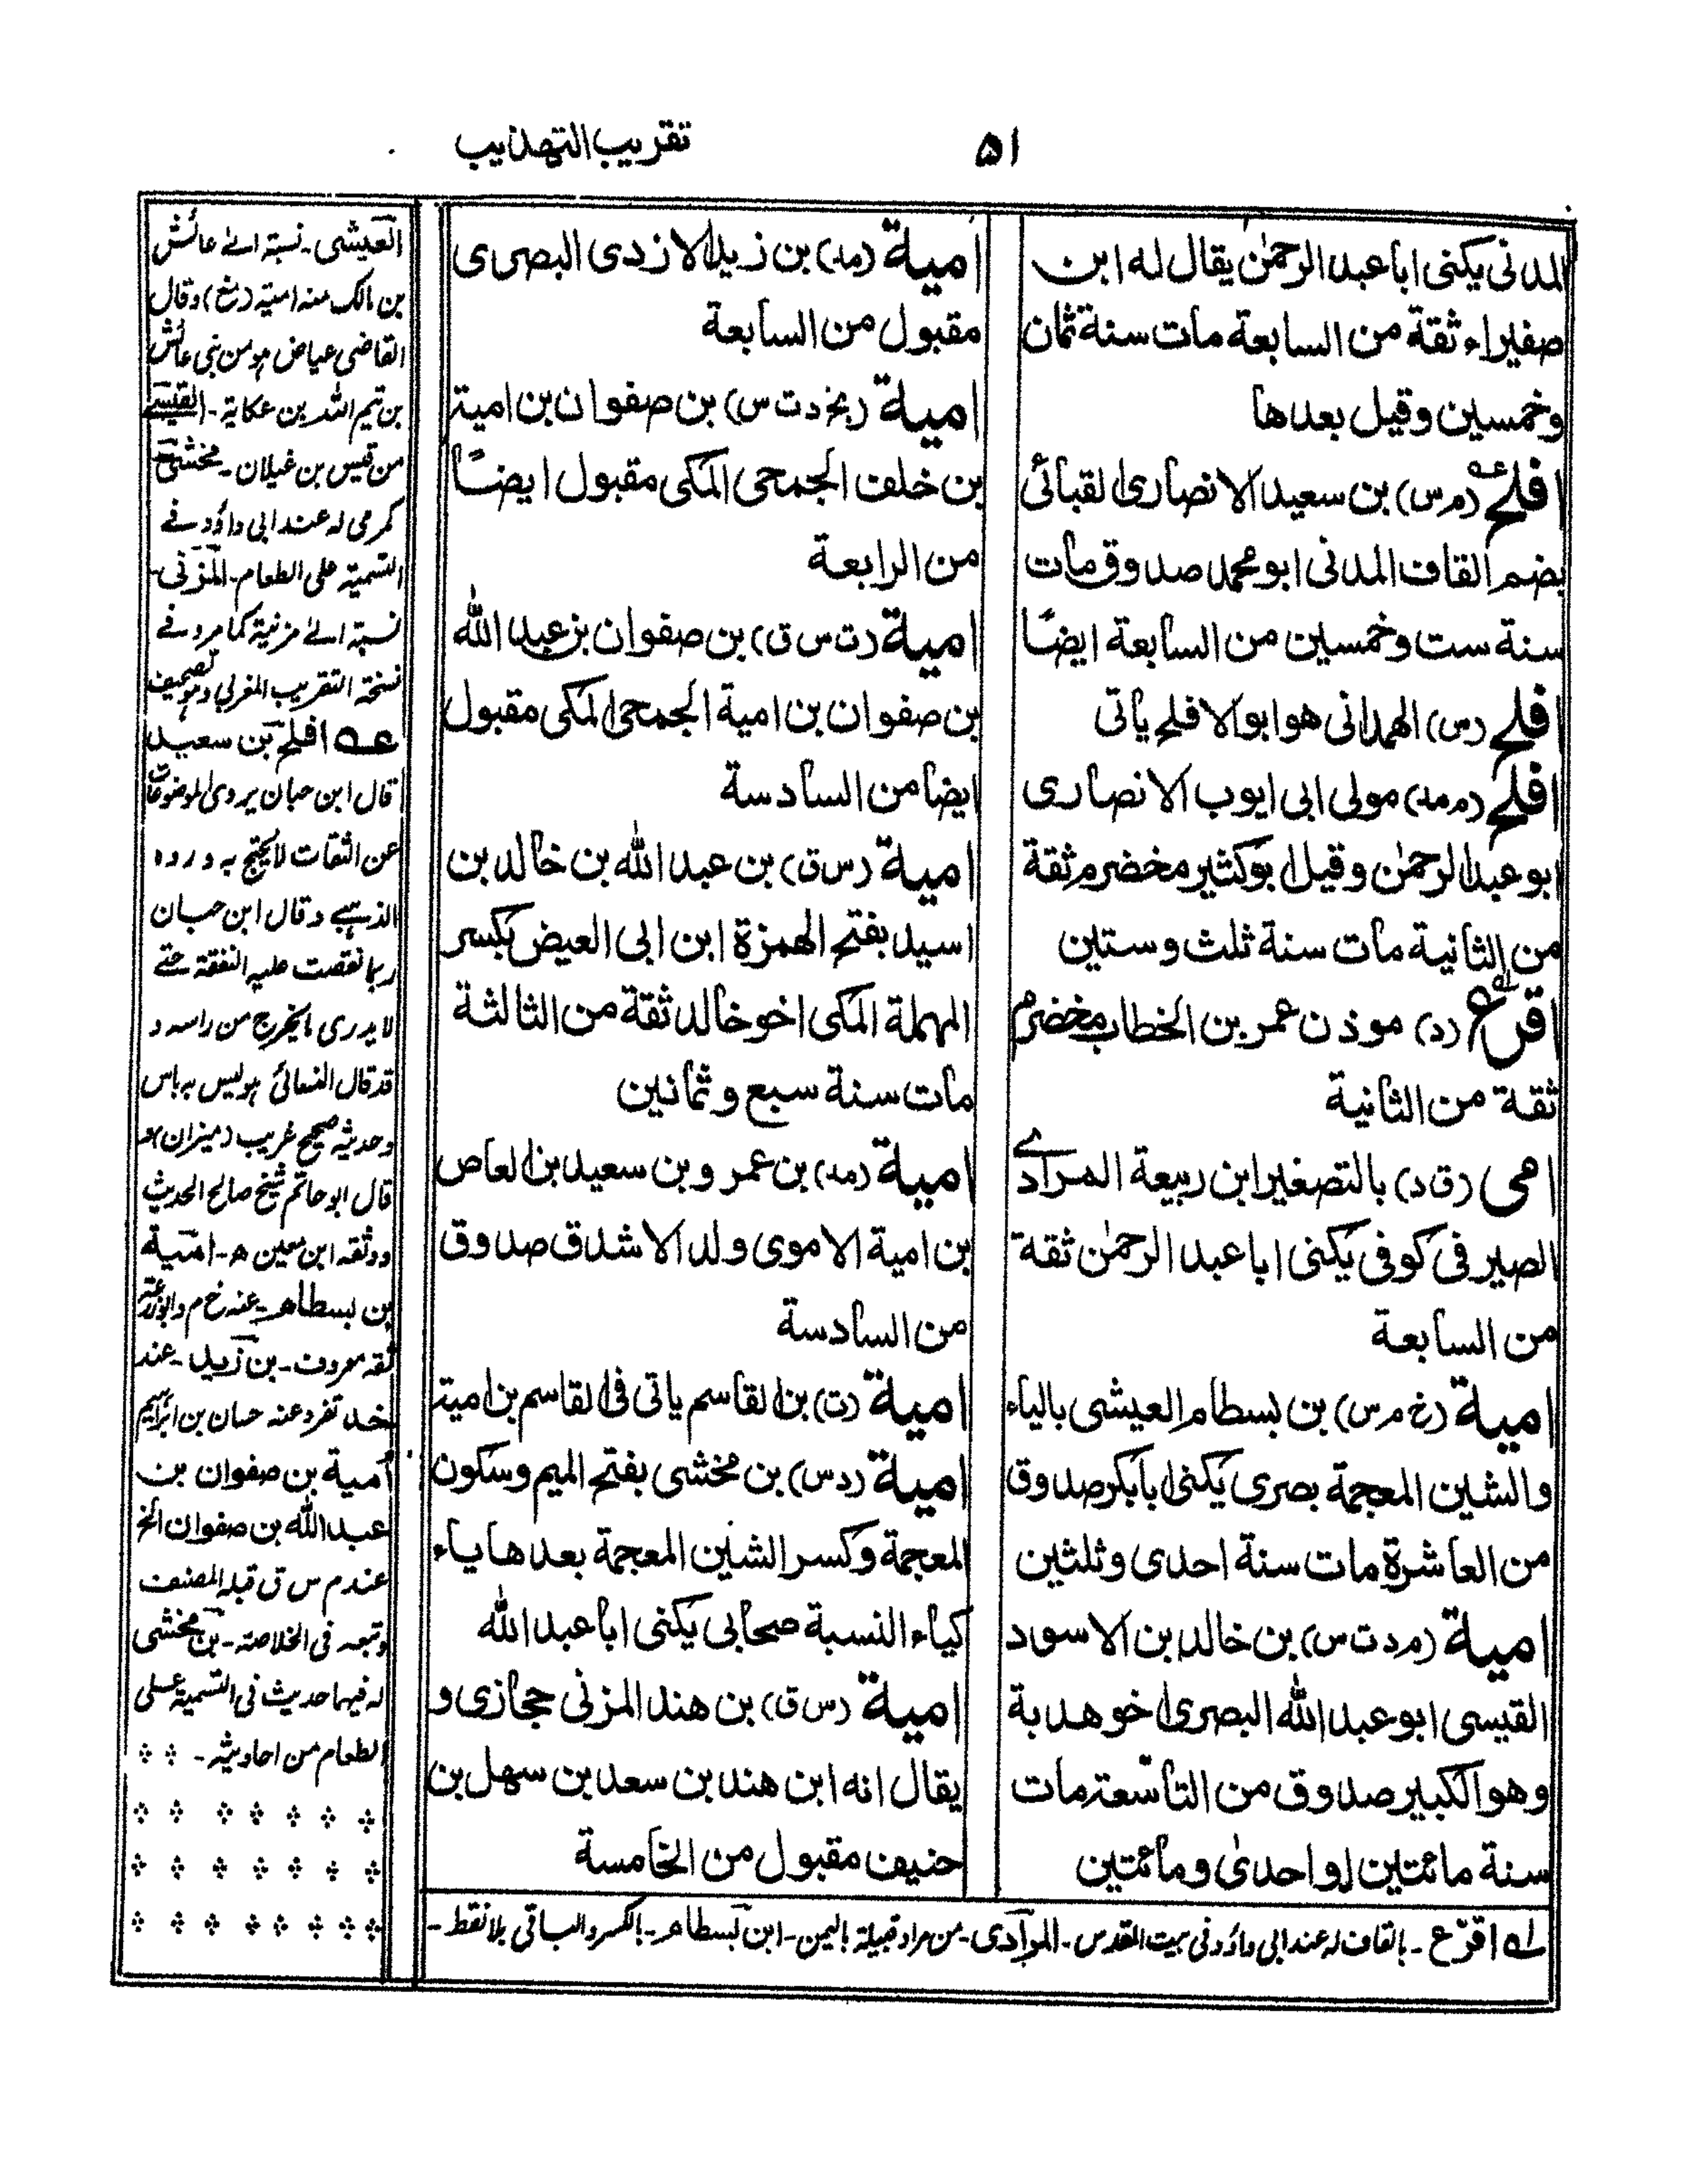 ٥١
تقريب التهذيب
المدنى يكنى ابا عبد الرحمٰن يقال له ابن
صفيراء ثقة من السابعة مات سنة ثمان
وخمسين وقيل بعدها
افلح (م س) بن سعيد الانصارى القبائى
بضم القاف المدنى ابو محمد صدوق مات
سنة ست وخمسين من السابعة ايضًا
افلح (س) الهمدانى هو ابو الافلح ياتى
افلح (م مد) مولى ابى ايوب الانصارى
ابو عبد الرحمٰن وقيل ابو كثير مخضرم ثقة
من الثانية مات سنة ثلث وستين
اقرع (د) موذن عمر بن الخطاب مخضرم
ثقة من الثانية
امى (ق د) بالتصغير ابن ربيعة المرادے
الصيرفى كوفى يكنى ابا عبد الرحمٰن ثقة
من السابعة
امية (خ م س) بن بسطام العيشى بالياء
والشين المعجمة بصرى يكنى ابا بكر صدوق
من العاشرة مات سنة احدى وثلثين
امية (م د ت س) بن خالد بن الاسود
القيسى ابو عبد الله البصرى اخو هدبة
وهو الكبير صدوق من التاسعة مات
سنة مائتين او احدىٰ ومائتين
امية (مد) بن زيد الازدى البصرى
مقبول من السابعة
امية (بخ د ت س) بن صفوان بن امية
بن خلف الجمحى المكى مقبول ايضًا
من الرابعة
امية (ت س ق) بن صفوان بن عبد الله
بن صفوان بن امية الجمحى المكى مقبول
ايضا من السادسة
امية (س ق) بن عبد الله بن خالد بن
اسيد بفتح الهمزة ابن ابى العيض بكسر
المهملة المكى اخو خالد ثقة من الثالثة
مات سنة سبع وثمانين
امية (مد) بن عمرو بن سعيد بن العاص
بن امية الاموى ولد الاشدق صدوق
من السادسة
امية (ت) بن القاسم ياتى فى القاسم بن امية
امية (د س) بن مخشى بفتح الميم وسكون
المعجمة وكسر الشين المعجمة بعدها ياء
كياء النسبة صحابى يكنى ابا عبد الله
امية (س ق) بن هند المزنى حجازى و
يقال انه ابن هند بن سعد بن سهل بن
حنيف مقبول من الخامسة
العيشى ـ نسبة الے عائش
بن مالك منه امية (مغ) وقال
القاضى عياض هو من بنى عائش
بن تيم الله بن عكاية ـ القيسى
من قيس بن غيلان ـ مخشى
كرمى له عند ابى داؤد فے
التسمية على الطعام ـ المزنى ـ
نسبة الے مزنية كما مر وفے
نسخة التقريب المغربى وهو تصحيف
عه افلح بن سعيد
قال ابن حبان يروى الموضوعات
عن الثقات لا يحتج به ورده
الذهبے وقال ابن حبان
ربما نقصت عليه النفقة حتے
لا يدرى ما يخرج من راسه و
قد قال النسائى هو ليس به باس
وحديثه صحيح غريب (ميزان) و
قال ابو حاتم شيخ صالح الحديث
ووثقه ابن معين ھ ـ امية
بن بسطام ـ عنه خ م وابوزرعة
ثقة معروف ـ بن زيد ـ عند
خد تفرد عنه حسان بن ابراهيم
أمية بن صفوان بن
عبد الله بن صفوان الخ
عند م س ق قبله المصنف
وتبعه فى الخلاصة ـ بن مخشى
له فيهما حديث فى التسمية على
الطعام من احاديثه ـ
له اقرع ـ بالقاف له عند ابى داؤد فى بيت المقدس ـ المرادى ـ من مراد قبيلة باليمن ـ ابن بسطام ـ بالكسر والباقى بلا نقط ـ